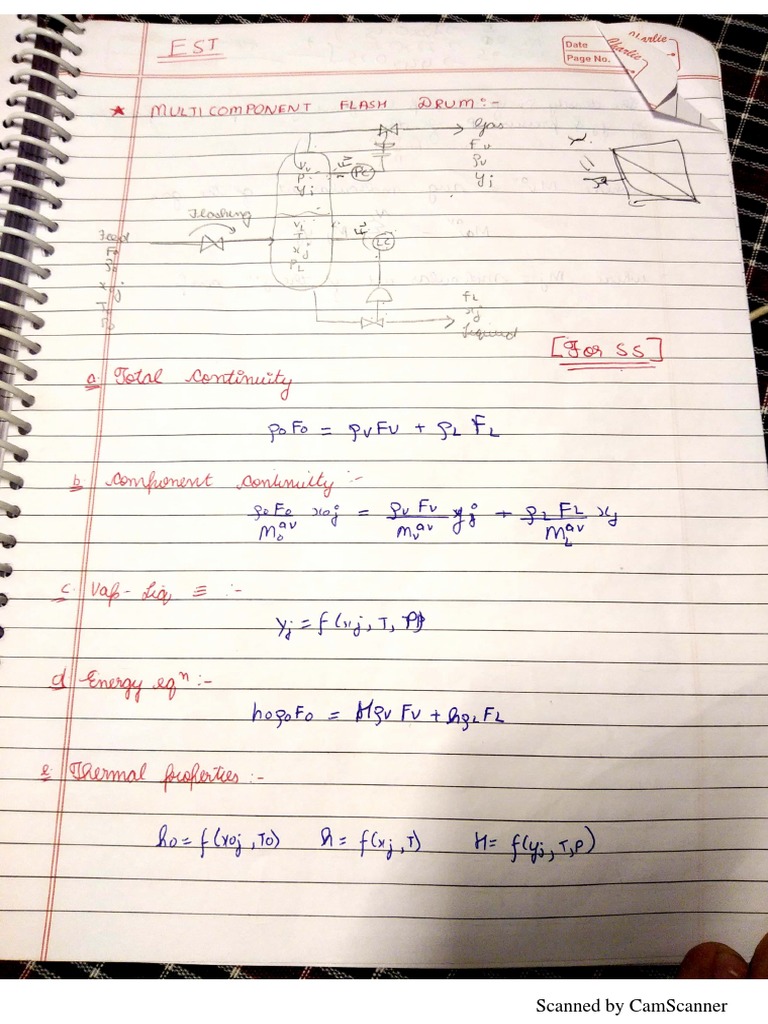 EST
Date
Page No.
Charlie
Charlie
* MULTICOMPONENT FLASH DRUM:-
Gas
Fv
ρv
yj
Vv
P
yj
PC
Fv
Flashing
Feed
Fo
ρo
xoj
To
Po
VL
T
xj
ρL
FL
LC
FL
xj
Liquid
[For SS]
a. Total Continuity
ρoFo = ρvFv + ρL FL
b. Component Continuity :-
ρoFo/Moav xoj = ρv Fv/Mvav yj + ρL FL/MLav xj
c. Vap-Liq ≡ :-
yj = f(xj, T, P)
d Energy eqn :-
hoρoFo = HρvFv + hρLFL
e. Thermal properties :-
ho = f(xoj, To) h = f(xj, T) H = f(yj, T, P)
Scanned by CamScanner